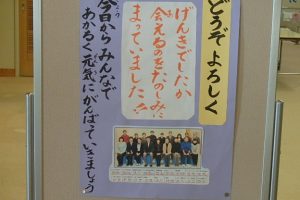 どうぞ よろしく
げんきでしたか
会えるのをたのしみに
まっていました!!
今日から みんなで
あかるく元気にがんばっていきましょう